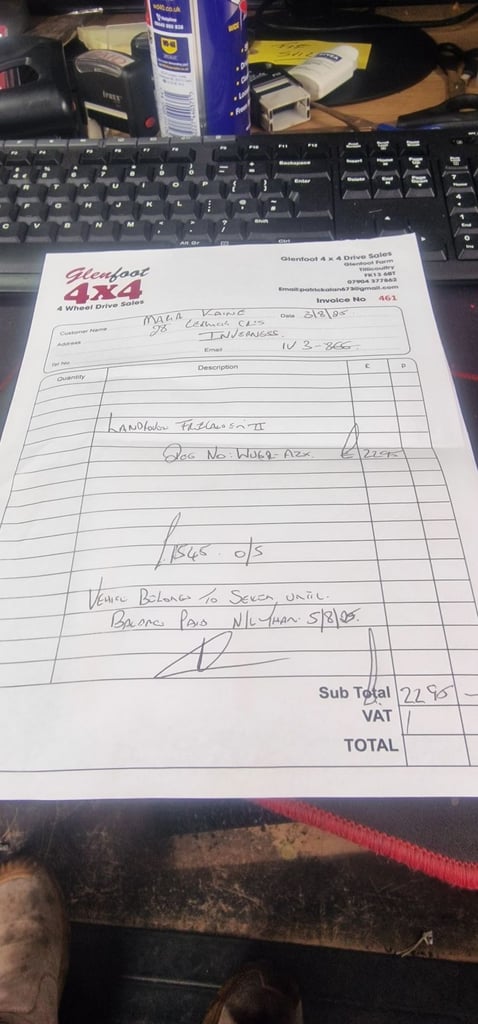 WD-40
Glenfoot
4x4
4 Wheel Drive Sales
Glenfoot 4 x 4 Drive Sales
Glenfoot Farm
Tillicoultry
FK13 6BT
07904 377862
Email:patrickalan673@gmail.com
Invoice No 461
Customer Name KAINE Date 3/8/25
Address 28
INVERNESS.
Tel No Email IV3-8GG.
Quantity Description £ P
LANDROVER II
REG No: AZX. £ 2295
£1545 O/S
VEHICLE BELONGS TO SELLER UNTIL
BALANCE PAID N/L THAN 5/8/25.
Sub Total 2295 -
VAT /
TOTAL